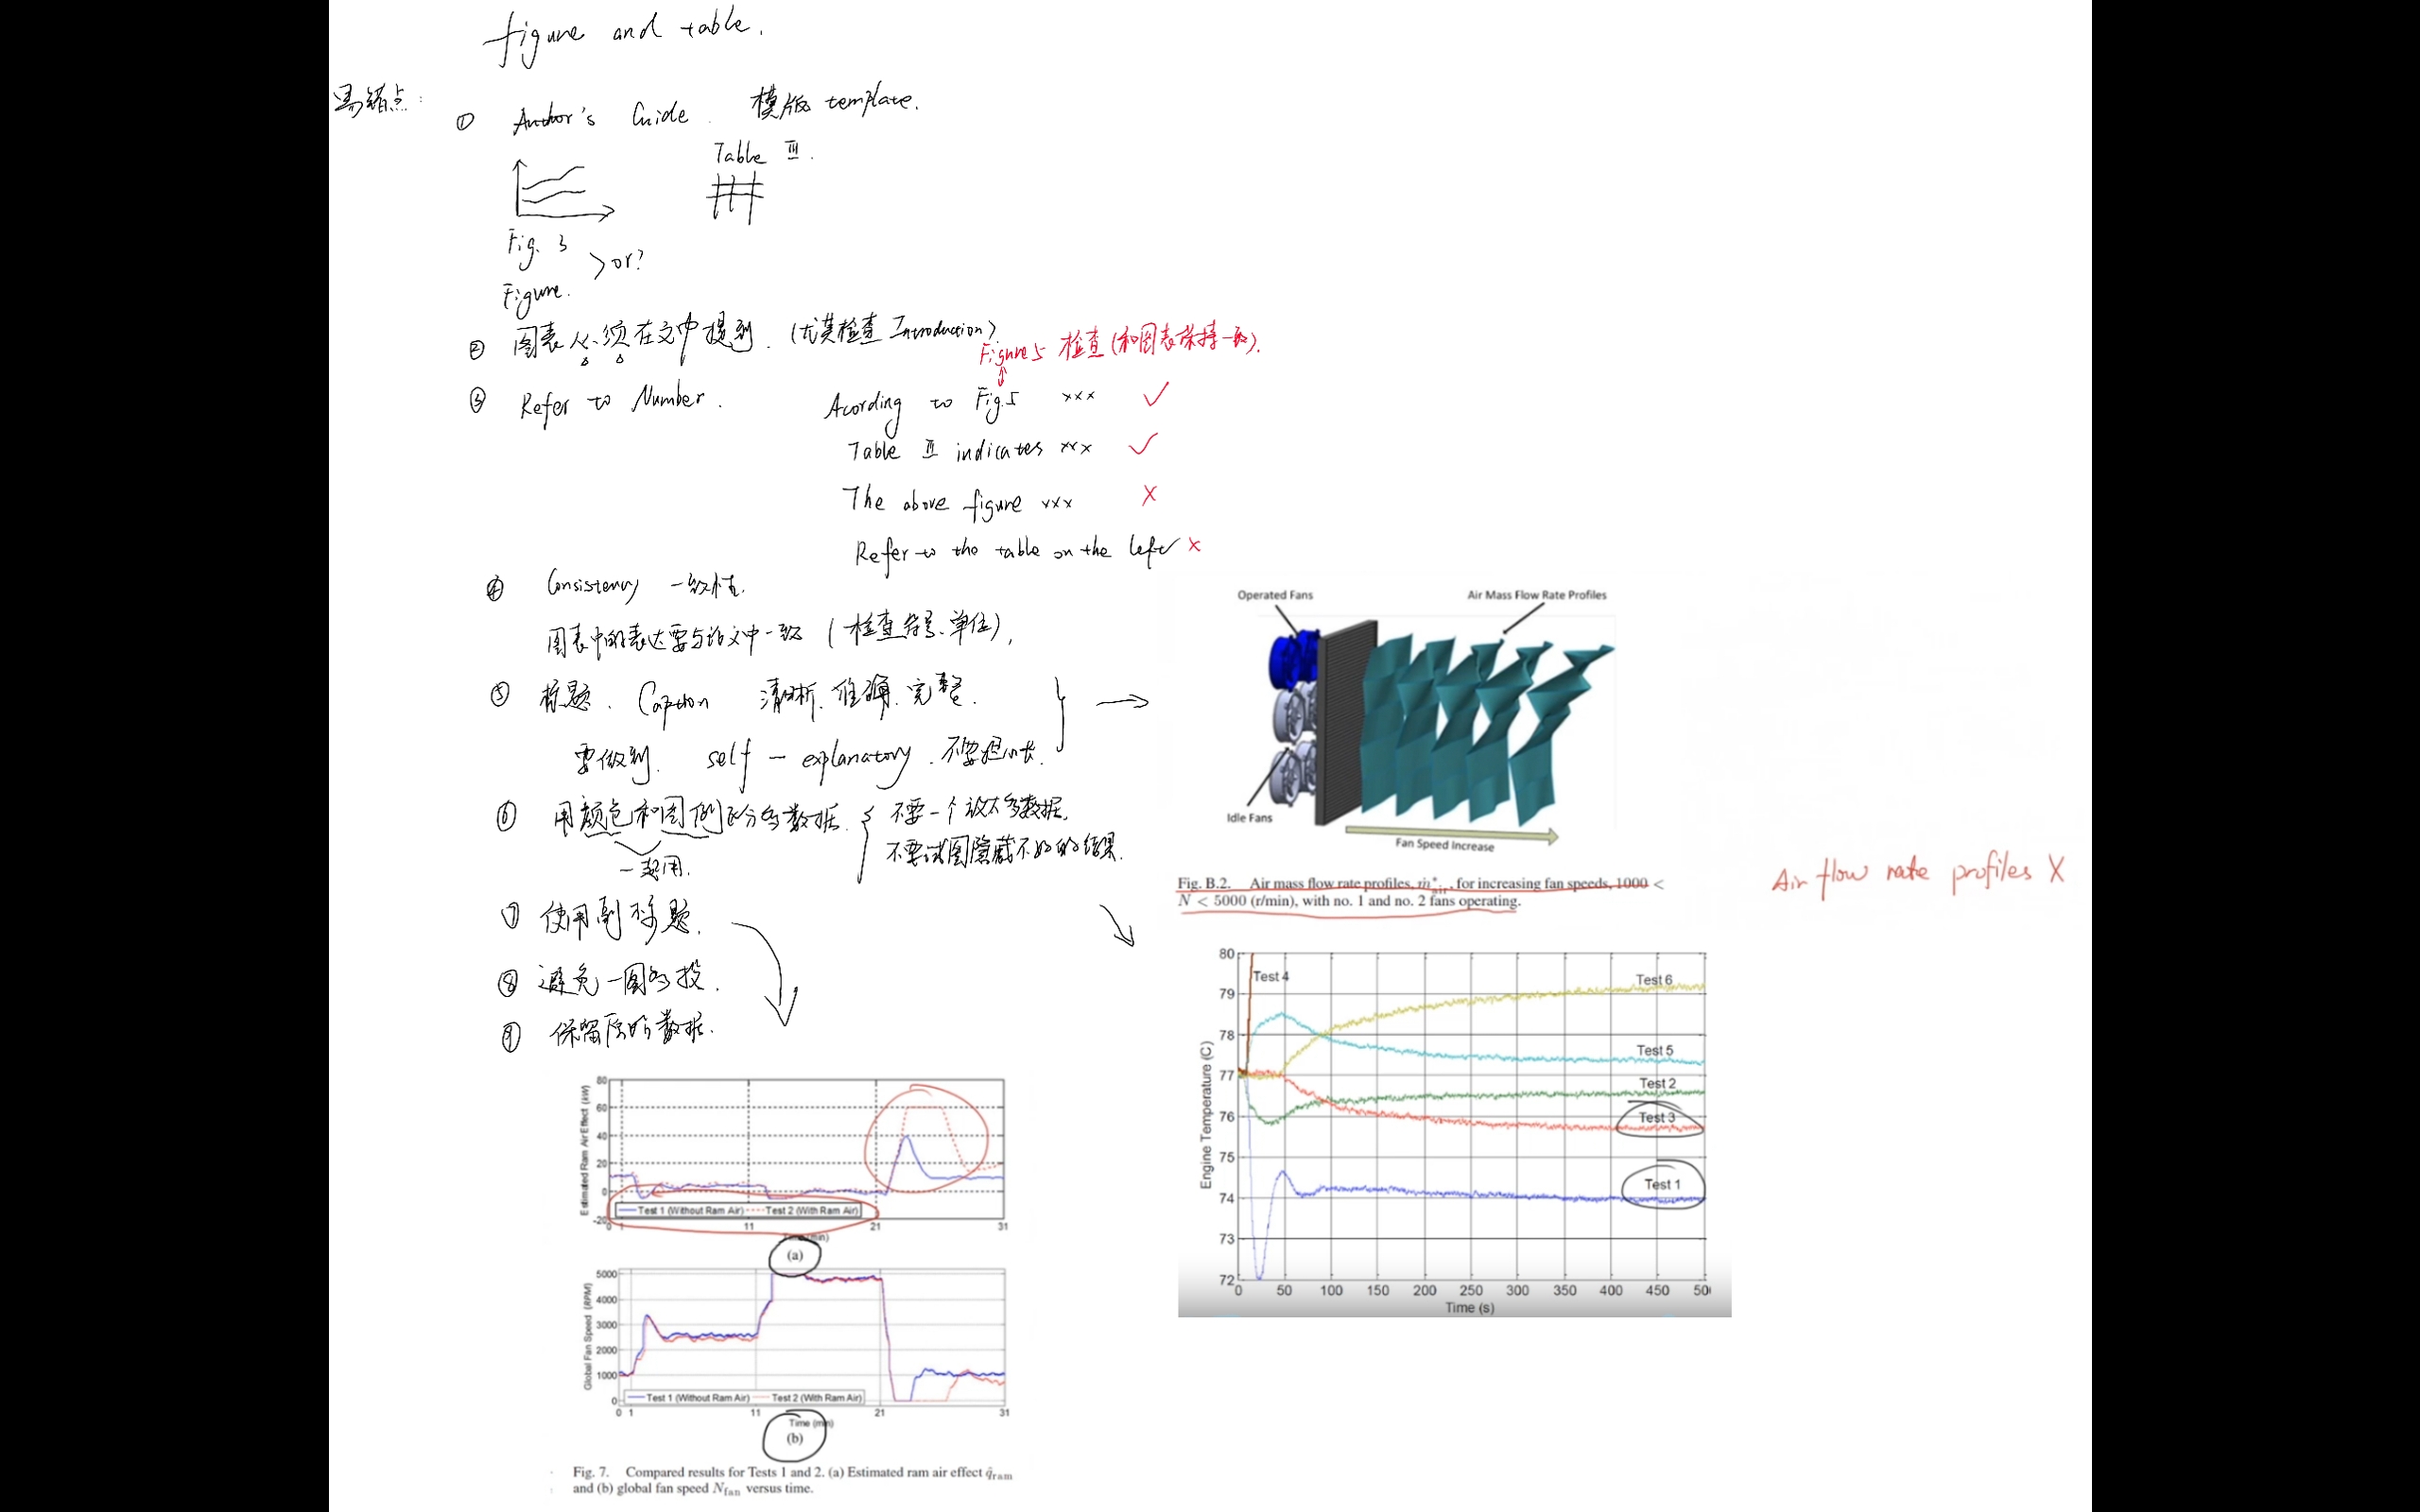 figure and table.
易错点:
① Author's Guide. 模版 template.
Table III.
Fig. 3
>or?
Figure.
② 图表必须在文中提到. (尤其检查 Introduction).
Figure 5 检查(和图表保持一致).
③ Refer to Number. Acording to Fig.5 xxx ✓
Table II indicates xxx ✓
The above figure xxx X
Refer to the table on the left x
④ Consistency 一致性.
图表中的表达要与论文中一致 (检查符号、单位),
⑤ 标题. Caption 清晰、准确、完整.
要做到. self - explanatory. 不要担心长.
⑥ 用颜色和图例区分多数据. 不要一个放太多数据.
不要试图隐藏不好的结果.
一起用.
⑦ 使用副标题.
⑧ 避免一图多投.
⑨ 保留原始数据.
Operated Fans
Air Mass Flow Rate Profiles
Idle Fans
Fan Speed Increase
Fig. B.2. Air mass flow rate profiles, ṁ*air, for increasing fan speeds, 1000 <
N < 5000 (r/min), with no. 1 and no. 2 fans operating.
Air flow rate profiles X
80
79
78
77
76
75
74
73
72
Engine Temperature (C)
Test 4
Test 6
Test 5
Test 2
Test 3
Test 1
0 50 100 150 200 250 300 350 400 450 50
Time (s)
Estimated Ram Air Effect (kW)
80
60
40
20
0
-20
Test 1 (Without Ram Air) Test 2 (With Ram Air)
0 1 11 21 31
(a)
Global Fan Speed (RPM)
5000
4000
3000
2000
1000
0
Test 1 (Without Ram Air) Test 2 (With Ram Air)
0 1 11 21 31
Time (min)
(b)
Fig. 7. Compared results for Tests 1 and 2. (a) Estimated ram air effect q̂ram
and (b) global fan speed Nfan versus time.